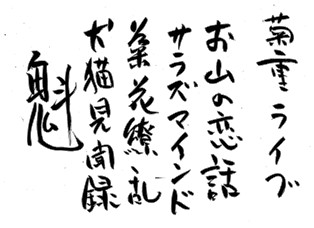 菊重ライブ
お山の恋話
サラズマインド
菜花繚乱
犬猫見聞録
魁